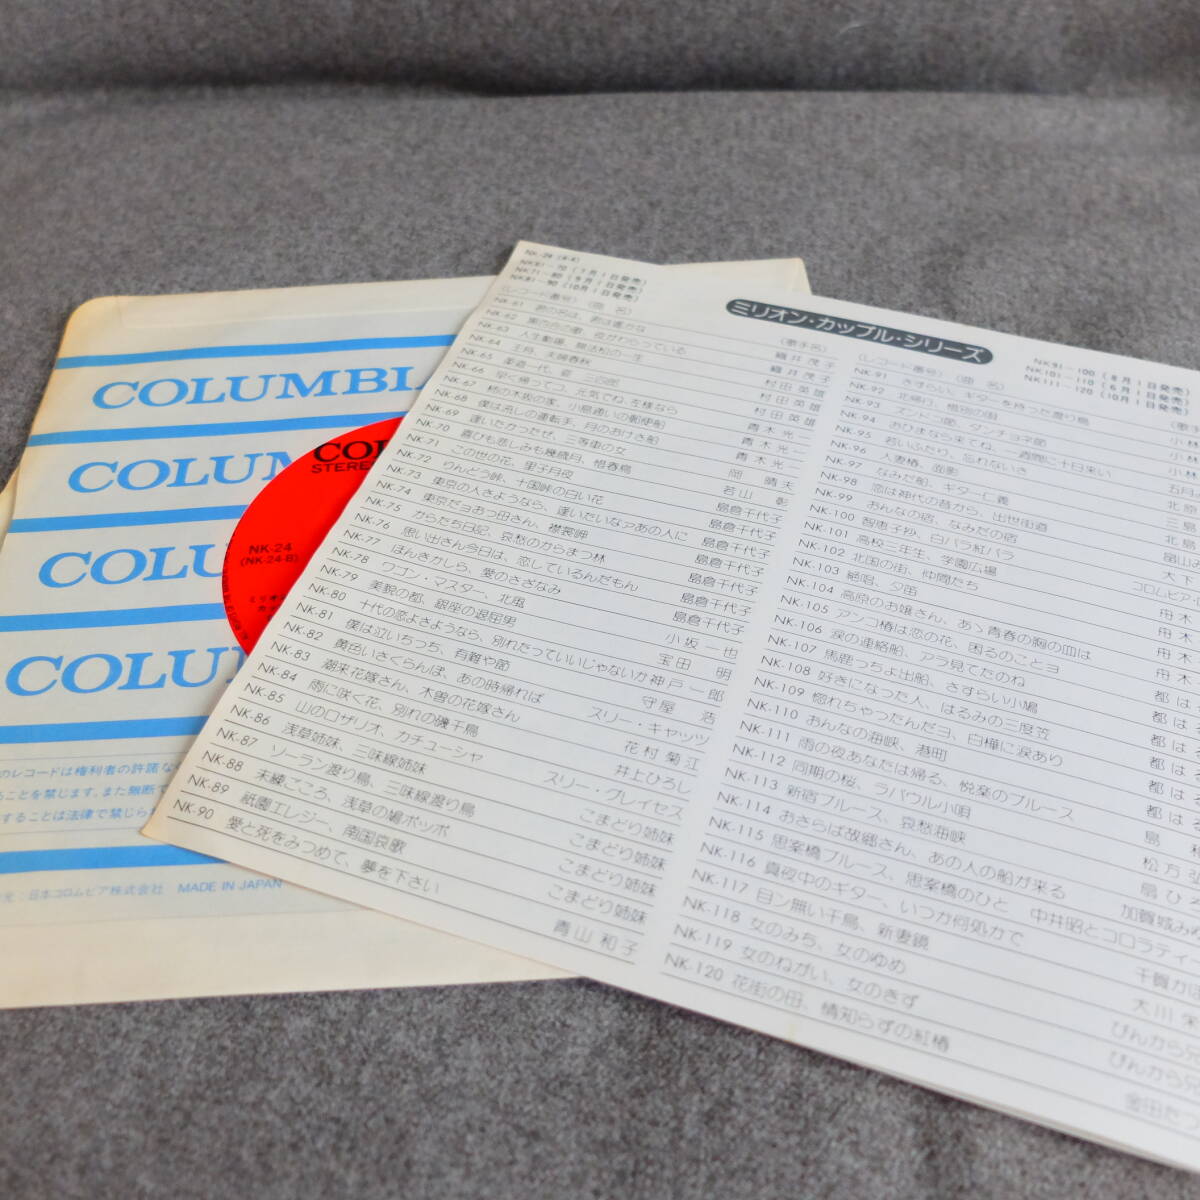 COLUMBIA
COLUM
COLU
COLUM
COL
STEREO
NK-24
(NK-24-B)
MADE IN JAPAN
元:日本コロムビア株式会社
ミリオン・カップル・シリーズ
NK81-90 (10月1日発売)
(レコード番号) (曲 名)
(歌手名)
NK-61 君の名は、君は遙かな 織井茂子
NK-62 東京台の歌、夜がわらっている 織井茂子
NK-63 人生劇場、無法松の一生 村田英雄
NK-64 王将、夫婦春秋 村田英雄
NK-65 柔道一代、姿三四郎
NK-66 早く帰ってコ、元気でね、左様なら 青木光一
NK-67 柿の木坂の家、小島通いの郵便船 青木光一
NK-68 僕は流しの運転手、月のおけさ船
NK-69 逢いたかったぜ、三等車の女 岡晴夫
NK-70 喜びも悲しみも幾歳月、惜春鳥 若山彰
NK-71 この世の花、里子月夜 島倉千代子
NK-72 りんどう峠、十国峠の白い花 島倉千代子
NK-73 東京の人さようなら、逢いたいなァあの人に 島倉千代子
NK-74 東京だヨおっ母さん、襟裳岬 島倉千代子
NK-75 からたち日記、哀愁のからまつ林 島倉千代子
NK-76 思い出さん今日は、恋しているんだもん 島倉千代子
NK-77 ほんきかしら、愛のさざなみ 島倉千代子
NK-78 ワゴン・マスター、北風 小坂一也
NK-79 美貌の都、銀座の退屈男 宝田明
NK-80 十代の恋よさようなら、別れたっていいじゃないか 神戸一郎
NK-81 僕は泣いちっち、有難や節 守屋浩
NK-82 黄色いさくらんぼ、あの時帰れば スリー・キャッツ
NK-83 潮来花嫁さん、木曽の花嫁さん 花村菊江
NK-84 雨に咲く花、別れの磯千鳥 井上ひろし
NK-85 山のロザリオ、カチューシャ スリー・グレイセス
NK-86 浅草姉妹、三味線姉妹 こまどり姉妹
NK-87 ソーラン渡り鳥、三味線渡り鳥 こまどり姉妹
NK-88 未練こころ、浅草の鳩ポッポ こまどり姉妹
NK-89 祇園エレジー、南国哀歌 こまどり姉妹
NK-90 愛と死をみつめて、夢を下さい 青山和子
NK91-100 (8月1日発売)
NK101-110 (6月1日発売)
NK111-120 (10月1日発売)
(レコード番号) (曲 名)
NK-91 さすらい、ギターを持った渡り鳥 小林
NK-92 北帰行、惜別の唄 小林
NK-93 ズンドコ節、ダンチョネ節 小林
NK-94 おひまなら来てね、一週間に十日来い 五月
NK-95 若いふたり、忘れないさ 北原
NK-96 人妻椿、面影
NK-97 なみだ船、ギター仁義 北島
NK-98 恋は神代の昔から、出世街道
NK-99 おんなの宿、なみだの宿 大下
NK-100 智恵子抄、白バラ紅バラ
NK-101 高校三年生、学園広場 舟木
NK-102 北国の街、仲間たち 舟木
NK-103 絶唱、夕笛 舟木
NK-104 高原のお嬢さん、あゝ青春の胸の血は 舟木
NK-105 アンコ椿は恋の花、困るのことヨ 都は
NK-106 涙の連絡船、アラ見てたのね 都は
NK-107 馬鹿っちょ出船、さすらい小鳩 都は
NK-108 好きになった人、はるみの三度笠 都は
NK-109 惚れちゃったんだヨ、白樺に涙あり 都は
NK-110 おんなの海峡、港町 都はる
NK-111 雨の夜あなたは帰る、悦楽のブルース 島 和
NK-112 同期の桜、ラバウル小唄
NK-113 新宿ブルース、哀愁海峡 扇ひろ
NK-114 おさらば故郷さん、あの人の船が来る 加賀城みゆ
NK-115 思案橋ブルース、思案橋のひと 中井昭とコロラティー
NK-116 真夜中のギター、いつか何処かで 千賀かほ
NK-117 目ン無い千鳥、新妻鏡 大川栄
NK-118 女のみち、女のゆめ ぴんから兄
NK-119 女のねがい、女のきず ぴんから兄
NK-120 花街の母、情知らずの紅椿 金田た